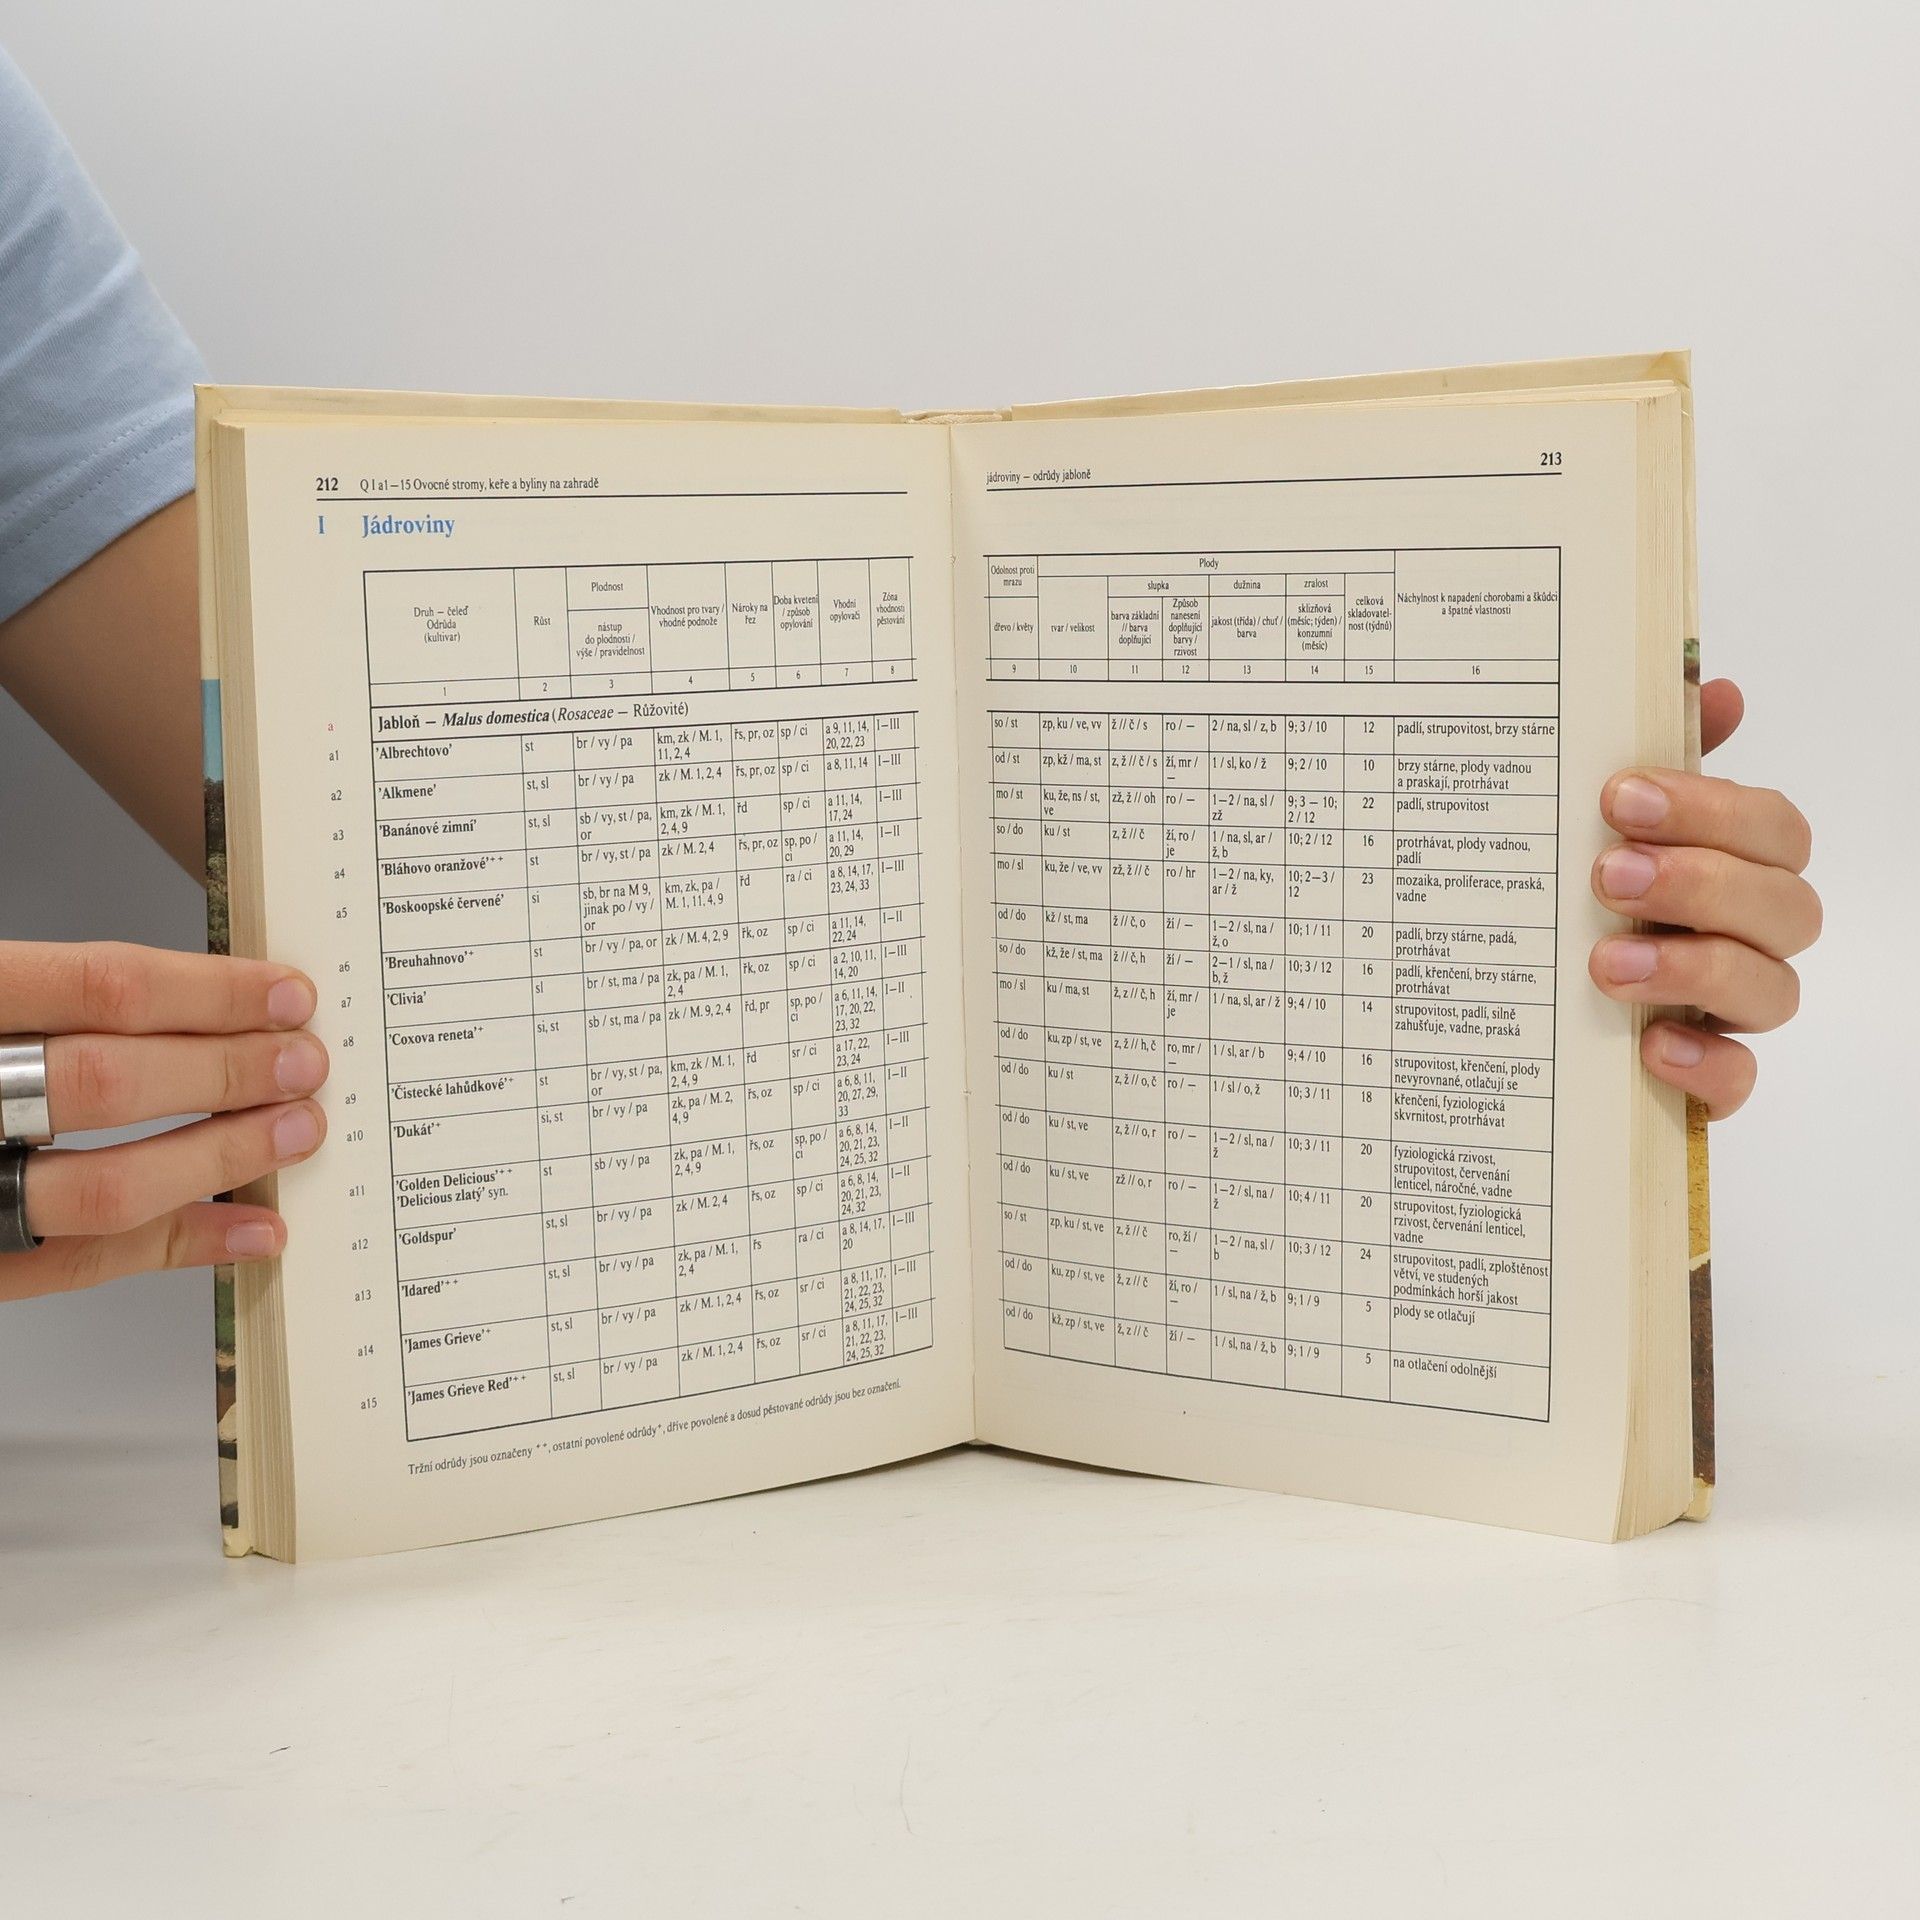 212 Q I a1–15 Ovocné stromy, keře a byliny na zahradě
I Jádroviny
Druh – čeleď
Odrůda
(kultivar)
Růst
Plodnost
nástup
do plodnosti /
výše / pravidelnost
Vhodnost pro tvary /
vhodné podnože
Nároky na
řez
Doba kvetení
/ způsob
opylování
Vhodní
opylovači
Zóna
vhodnosti
pěstování
1 2 3 4 5 6 7 8
a Jabloň – Malus domestica (Rosaceae – Růžovité)
a1 'Albrechtovo' st br / vy / pa km, zk / M. 1, 11, 2, 4 řs, pr, oz sp / ci a 9, 11, 14, 20, 22, 23 I–III
a2 'Alkmene' st, sl br / vy / pa zk / M. 1, 2, 4 řs, pr, oz sp / ci a 8, 11, 14 I–III
a3 'Banánové zimní' st, sl sb / vy, st / pa, or km, zk / M. 1, 2, 4, 9 řd sp / ci a 11, 14, 17, 24 I–III
a4 'Bláhovo oranžové'++ st br / vy, st / pa zk / M. 2, 4 řs, pr, oz sp, po / ci a 11, 14, 20, 29 I–II
a5 'Boskoopské červené' si sb, br na M 9, jinak po / vy / or km, zk, pa / M. 1, 11, 4, 9 řd ra / ci a 8, 14, 17, 23, 24, 33 I–III
a6 'Breuhahnovo'+ st br / vy / pa, or zk / M. 4, 2, 9 řk, oz sp / ci a 11, 14, 22, 24 I–II
a7 'Clivia' sl br / st, ma / pa zk, pa / M. 1, 2, 4 řk, oz sp / ci a 2, 10, 11, 14, 20 I–III
a8 'Coxova reneta'+ si, st sb / st, ma / pa zk / M. 9, 2, 4 řd, pr sp, po / ci a 6, 11, 14, 17, 20, 22, 23, 32 I–II
a9 'Čistecké lahůdkové'+ st br / vy, st / pa, or km, zk / M. 1, 2, 4, 9 řd sr / ci a 17, 22, 23, 24 I–III
a10 'Dukát'+ si, st br / vy / pa zk, pa / M. 2, 4, 9 řs, oz sp / ci a 6, 8, 11, 20, 27, 29, 33 I–II
a11 'Golden Delicious'++ 'Delicious zlatý' syn. st sb / vy / pa zk, pa / M. 1, 2, 4, 9 řs, oz sp, po / ci a 6, 8, 14, 20, 21, 23, 24, 25, 32 I–II
a12 'Goldspur' st, sl br / vy / pa zk / M. 2, 4 řs, oz sp / ci a 6, 8, 14, 20, 21, 23, 24, 32 I–II
a13 'Idared'++ st, sl br / vy / pa zk, pa / M. 1, 2, 4 řs ra / ci a 8, 14, 17, 20 I–III
a14 'James Grieve'+ st, sl br / vy / pa zk / M. 1, 2, 4 řs, oz sr / ci a 8, 11, 17, 21, 22, 23, 24, 25, 32 I–III
a15 'James Grieve Red'++ st, sl br / vy / pa zk / M. 1, 2, 4 řs, oz sr / ci a 8, 11, 17, 21, 22, 23, 24, 25, 32 I–III
Tržní odrůdy jsou označeny ++, ostatní povolené odrůdy+, dříve povolené a dosud pěstované odrůdy jsou bez označení.
jádroviny – odrůdy jabloně 213
Odolnost proti
mrazu
dřevo / květy
Plody
tvar / velikost
slupka
barva základní
// barva
doplňující
Způsob
nanesení
doplňující
barvy /
rzivost
dužnina
jakost (třída) / chuť /
barva
zralost
sklizňová
(měsíc; týden) /
konzumní
(měsíc)
celková
skladovatel-
nost (týdnů)
Náchylnost k napadení chorobami a škůdci
a špatné vlastnosti
9 10 11 12 13 14 15 16
so / st zp, ku / ve, vv ž // č / s ro / – 2 / na, sl / z, b 9; 3 / 10 12 padlí, strupovitost, brzy stárne
od / st zp, kž / ma, st z, ž // č / s ží, mr / – 1 / sl, ko / ž 9; 2 / 10 10 brzy stárne, plody vadnou a praskají, protrhávat
mo / st ku, že, ns / st, ve zž, ž // oh ro / – 1–2 / na, sl / zž 9; 3 – 10; 2 / 12 22 padlí, strupovitost
so / do ku / st z, ž // č ží, ro / je 1 / na, sl, ar / ž, b 10; 2 / 12 16 protrhávat, plody vadnou, padlí
mo / sl ku, že / ve, vv zž, ž // č ro / hr 1–2 / na, ky, ar / ž 10; 2–3 / 12 23 mozaika, proliferace, praská, vadne
od / do kž / st, ma ž // č, o ží / – 1–2 / sl, na / ž, o 10; 1 / 11 20 padlí, brzy stárne, padá, protrhávat
so / do kž, že / st, ma ž // č, h ží / – 2–1 / sl, na / b, ž 10; 3 / 12 16 padlí, křenčení, brzy stárne, protrhávat
mo / sl ku / ma, st ž, z // č, h ží, mr / je 1 / na, sl, ar / ž 9; 4 / 10 14 strupovitost, padlí, silně zahušťuje, vadne, praská
od / do ku, zp / st, ve z, ž // h, č ro, mr / – 1 / sl, ar / b 9; 4 / 10 16 strupovitost, křenčení, plody nevyrovnané, otlačují se
od / do ku / st z, ž // o, č ro / – 1 / sl / o, ž 10; 3 / 11 18 křenčení, fyziologická skvrnitost, protrhávat
od / do ku / st, ve z, ž // o, r ro / – 1–2 / sl, na / ž 10; 3 / 11 20 fyziologická rzivost, strupovitost, červenání lenticel, náročné, vadne
od / do ku / st, ve zž // o, r ro / – 1–2 / sl, na / ž 10; 4 / 11 20 strupovitost, fyziologická rzivost, červenání lenticel, vadne
so / st zp, ku / st, ve z, ž // č ro, ží / – 1–2 / na, sl / b 10; 3 / 12 24 strupovitost, padlí, zploštěnost větví, ve studených podmínkách horší jakost
od / do ku, zp / st, ve ž, z // č ží, ro / – 1 / sl, na / ž, b 9; 1 / 9 5 plody se otlačují
od / do kž, zp / st, ve ž, z // č ží / – 1 / sl, na / ž, b 9; 1 / 9 5 na otlačení odolnější